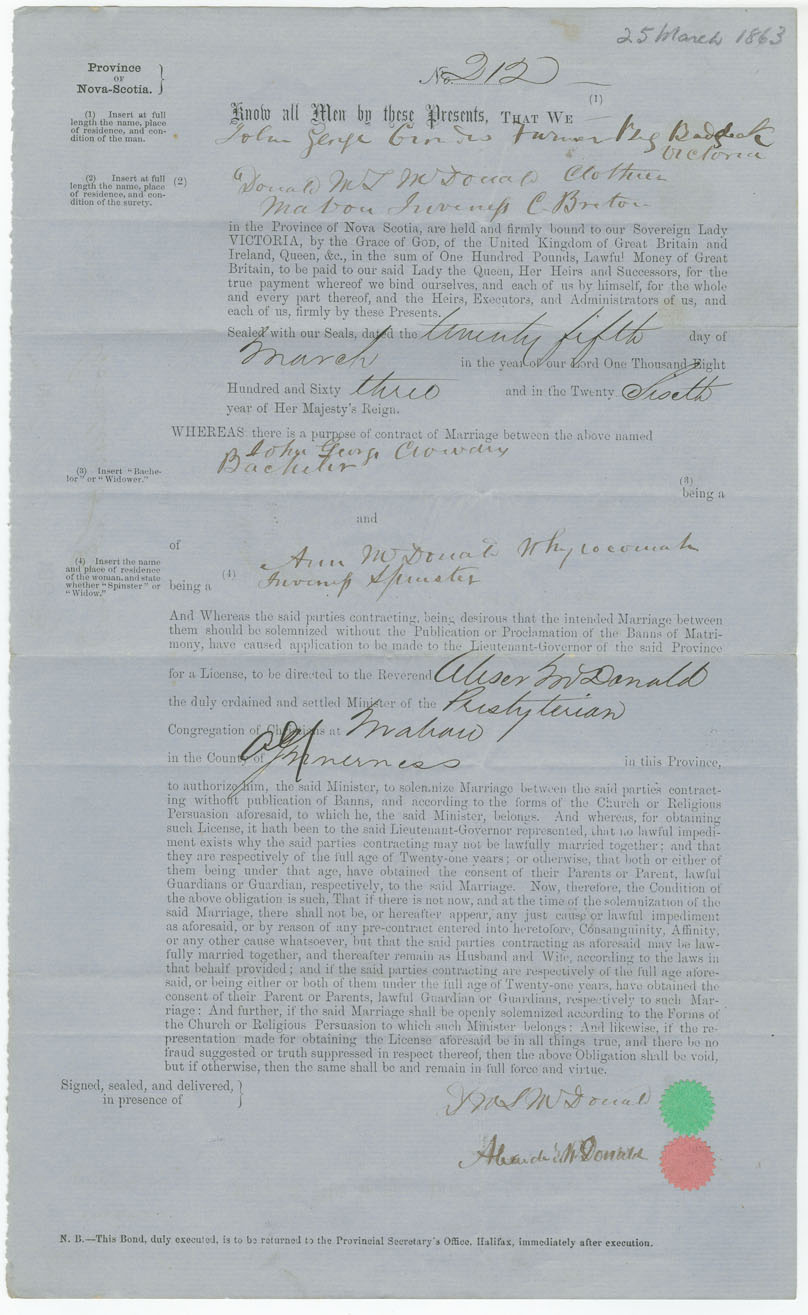 25 March 1863
Province
OF
Nova-Scotia.
No. 212
(1) Insert at full
length the name, place
of residence, and con-
dition of the man.
(1)
Know all Men by these Presents, THAT WE
John George Farmer Badeck
Victoria
(2) Insert at full
length the name, place
of residence, and con-
dition of the surety.
(2)
Donald McL McDonald Clothier
Mabou Inverness C. Breton
in the Province of Nova Scotia, are held and firmly bound to our Sovereign Lady
VICTORIA, by the Grace of GOD, of the United Kingdom of Great Britain and
Ireland, Queen, &c., in the sum of One Hundred Pounds, Lawful Money of Great
Britain, to be paid to our said Lady the Queen, Her Heirs and Successors, for the
true payment whereof we bind ourselves, and each of us by himself, for the whole
and every part thereof, and the Heirs, Executors, and Administrators of us, and
each of us, firmly by these Presents.
Sealed with our Seals, dated the twenty fifth day of
March in the year of our Lord One Thousand Eight
Hundred and Sixty three and in the Twenty Sixth
year of Her Majesty's Reign.
WHEREAS there is a purpose of contract of Marriage between the above named
John George Crowdis
Bachelor
(3) Insert "Bache-
lor" or "Widower."
(3)
being a
and
of
(4) Insert the name
and place of residence
of the woman, and state
whether "Spinster" or
"Widow."
being a
(4)
Ann McDonald Whycocomah
Inverness Spinster
And Whereas the said parties contracting, being desirous that the intended Marriage between
them should be solemnized without the Publication or Proclamation of the Banns of Matri-
mony, have caused application to be made to the Lieutenant-Governor of the said Province
for a License, to be directed to the Reverend McDonald
the duly ordained and settled Minister of the Presbyterian
Congregation of Christians at Mabou
in the County of Inverness in this Province,
to authorize him, the said Minister, to solemnize Marriage between the said parties contract-
ing without publication of Banns, and according to the forms of the Church or Religious
Persuasion aforesaid, to which he, the said Minister, belongs. And whereas, for obtaining
such License, it hath been to the said Lieutenant-Governor represented, that no lawful impedi-
ment exists why the said parties contracting may not be lawfully married together; and that
they are respectively of the full age of Twenty-one years; or otherwise, that both or either of
them being under that age, have obtained the consent of their Parents or Parent, lawful
Guardians or Guardian, respectively, to the said Marriage. Now, therefore, the Condition of
the above obligation is such, That if there is not now, and at the time of the solemnization of the
said Marriage, there shall not be, or hereafter appear, any just cause or lawful impediment
as aforesaid, or by reason of any pre-contract entered into heretofore, Consanguinity, Affinity,
or any other cause whatsoever, but that the said parties contracting as aforesaid may be law-
fully married together, and thereafter remain as Husband and Wife, according to the laws in
that behalf provided; and if the said parties contracting are respectively of the full age afore-
said, or being either or both of them under the full age of Twenty-one years, have obtained the
consent of their Parent or Parents, lawful Guardian or Guardians, respectively to such Mar-
riage: And further, if the said Marriage shall be openly solemnized according to the Forms of
the Church or Religious Persuasion to which such Minister belongs: And likewise, if the re-
presentation made for obtaining the License aforesaid be in all things true, and there be no
fraud suggested or truth suppressed in respect thereof, then the above Obligation shall be void,
but if otherwise, then the same shall be and remain in full force and virtue.
Signed, sealed, and delivered,
in presence of
McL McDonald
McDonald
N. B.—This Bond, duly executed, is to be returned to the Provincial Secretary's Office, Halifax, immediately after execution.